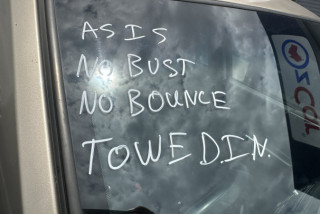 AS IS
NO BUST
NO BOUNCE
TOWED.I.N.
OzCar